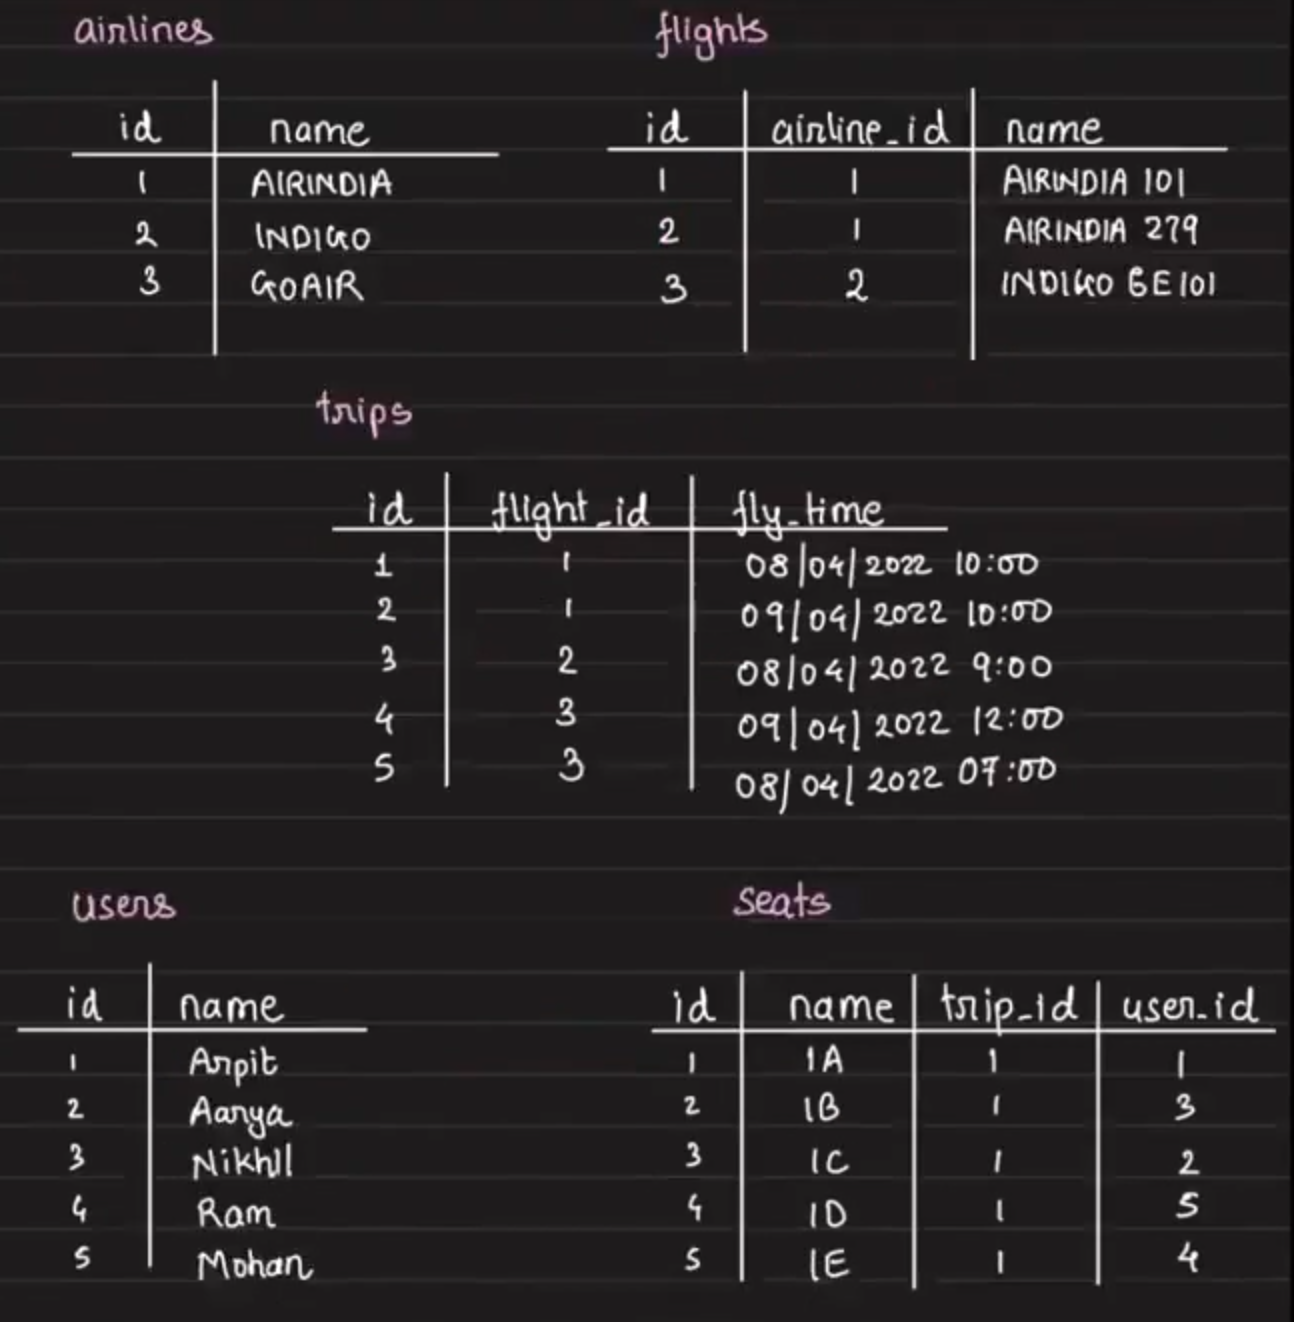 airlines
id name
1 AIRINDIA
2 INDIGO
3 GOAIR
flights
id airline_id name
1 1 AIRINDIA 101
2 1 AIRINDIA 279
3 2 INDIGO 6E101
trips
id flight_id fly_time
1 1 08/04/2022 10:00
2 1 09/04/2022 10:00
3 2 08/04/2022 9:00
4 3 09/04/2022 12:00
5 3 08/04/2022 07:00
users
id name
1 Arpit
2 Aarya
3 Nikhil
4 Ram
5 Mohan
seats
id name trip_id user_id
1 1A 1 1
2 1B 1 3
3 1C 1 2
4 1D 1 5
5 1E 1 4